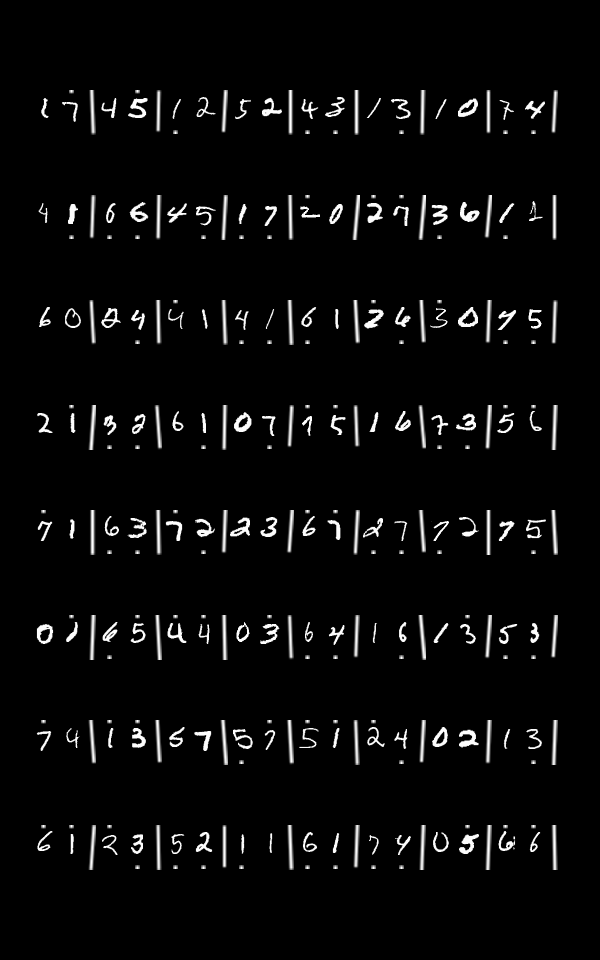 1 7 | 4 5 | 1 2 | 5 2 | 4 3 | 1 3 | 1 0 | 7 4 |
4 1 | 6 6 | 4 5 | 1 7 | 2 0 | 2 7 | 3 6 | 1 1 |
6 0 | 2 4 | 4 1 | 4 1 | 6 1 | 2 6 | 3 0 | 7 5 |
2 1 | 3 2 | 6 1 | 0 7 | 1 5 | 1 6 | 7 3 | 5 6 |
7 1 | 6 3 | 7 2 | 2 3 | 6 7 | 2 7 | 7 2 | 7 5 |
0 1 | 6 5 | 4 4 | 0 3 | 6 4 | 1 6 | 1 3 | 5 3 |
7 4 | 1 3 | 5 7 | 5 7 | 5 1 | 2 4 | 0 2 | 1 3 |
6 1 | 2 3 | 5 2 | 1 1 | 6 1 | 7 4 | 0 5 | 6 6 |